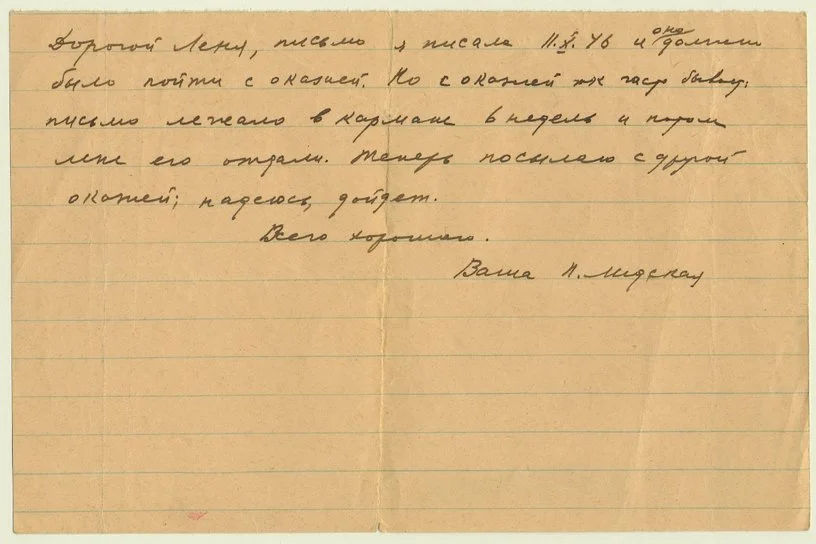 Дорогой Леня, письмо я писала 11.X.46 и оно должно
было пойти с оказией. Но с оказией так часто бывает:
письмо лежало в кармане 6 недель и потом
мне его отдали. Теперь посылаю с другой
оказией; надеюсь, дойдет.
Всего хорошего.
Ваша